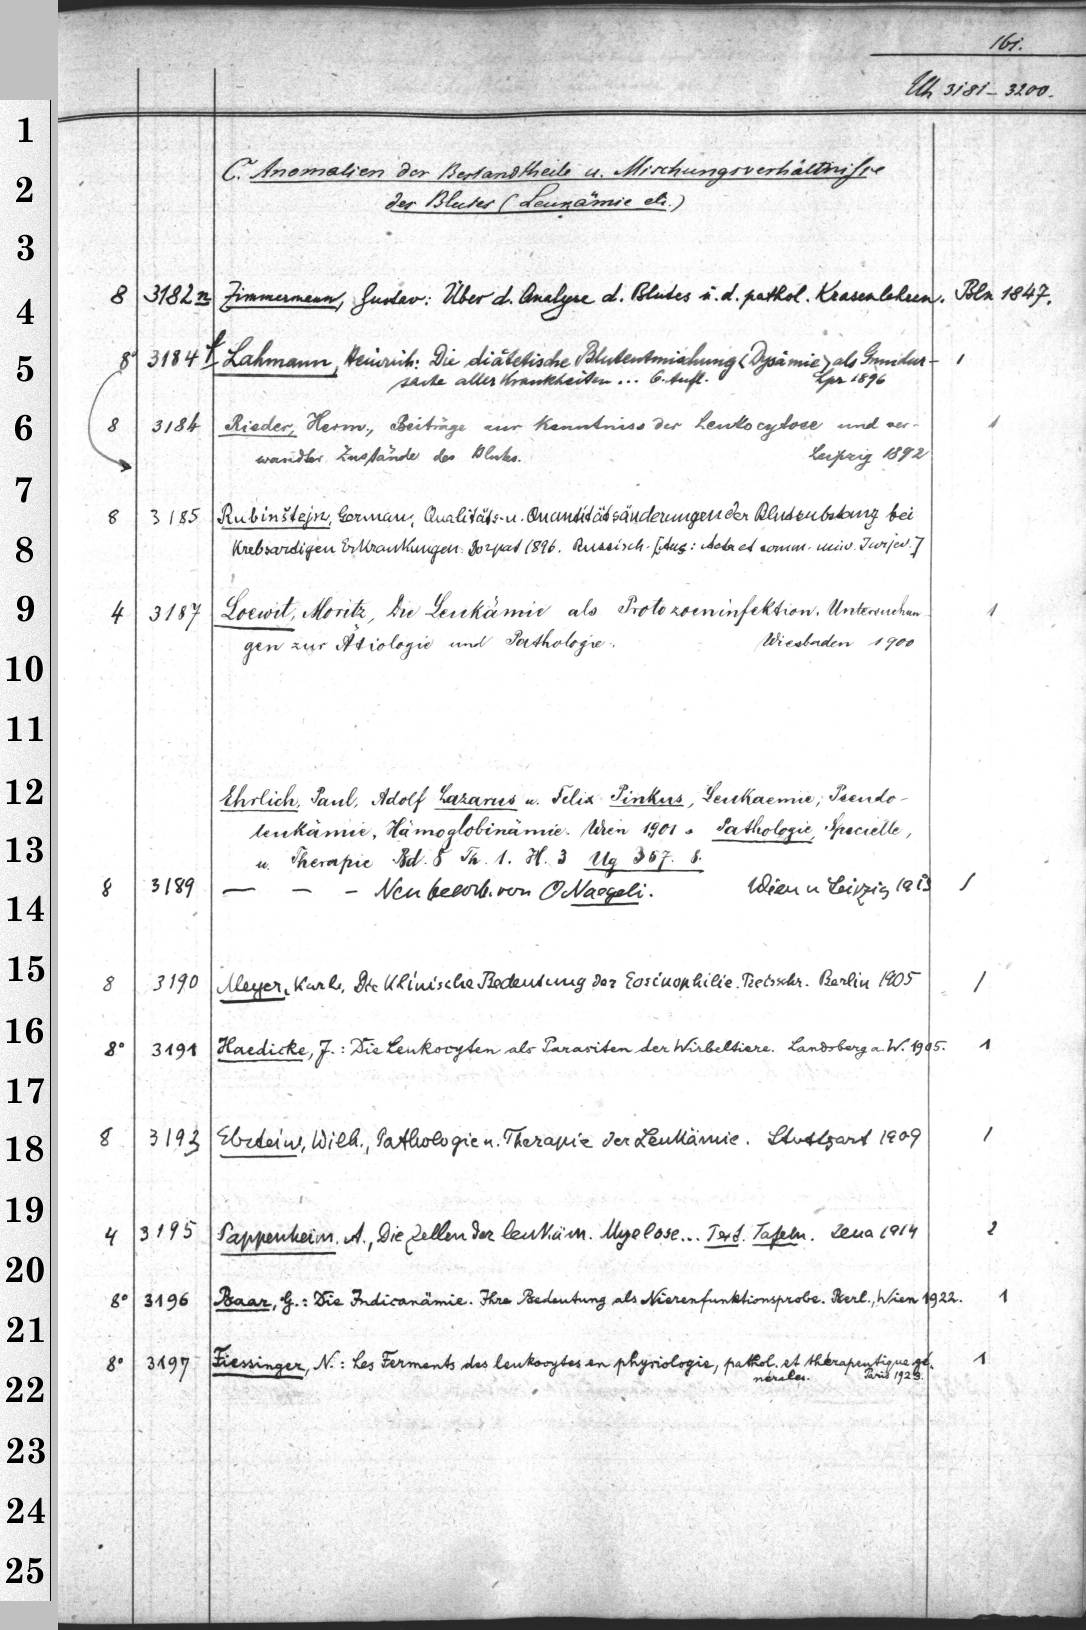 161.
Uh 3181–3200.
C. Anomalien der Bestandtheile u. Mischungsverhältnisse
des Blutes (Leukämie etc.)
8 3182n Zimmermann, Gustav: Über d. Analyse d. Blutes u. d. pathol. Krasenlehren. Bln 1847.
8° 3184f Lahmann, Heinrich: Die diätetische Blutentmischung (Dysämie) als Grundur- 1
sache aller Krankheiten... 6. Aufl. Lpz 1896
8 3184 Rieder, Herm., Beiträge zur Kenntniss der Leukocytose und ver- 1
wandter Zustände des Blutes. Leipzig 1892
8 3185 Rubinštejn, German, Qualitäts- u. Quantitätsänderungen der Blutsubstanz bei
Krebsardigen Erkrankungen. Dorpat 1896. Russisch. [Aus: Acta et comm. univ. Jurjev.]
4 3187 Loewit, Moritz, Die Leukämie als Protozoeninfektion. Untersuchun 1
gen zur Ätiologie und Pathologie. Wiesbaden 1900
Ehrlich, Paul, Adolf Lazarus u. Felix Pinkus, Leukaemie, Pseudo-
leukämie, Hämoglobinämie. Wien 1901 = Pathologie, Specielle,
u. Therapie Bd. 8 Th. 1. H. 3 Ug 367. 8.
8 3189 — – – Neu bearb. von O Naegeli. Wien u Leipzig 1913 1
8 3190 Meyer, Karl, Die Klinische Bedeutung der Eosinophilie. Preisschr. Berlin 1905 1
8° 3191 Haedicke, J.: Die Leukocyten als Parasiten der Wirbeltiere. Landsberg a. W. 1905. 1
8 3193 Ebstein, Wilh., Pathologie u. Therapie der Leukämie. Stuttgart 1909 1
4 3195 Pappenheim, A., Die Zellen der leukäm. Myelose... Text. Tafeln. Jena 1914 2
8° 3196 Baar, G.: Die Indicanämie. Ihre Bedeutung als Nierenfunktionsprobe. Berl., Wien 1922. 1
8° 3197 Fiessinger, N.: Les Ferments des leukocytes en physiologie, pathol. et thérapeutique gé- 1
nérales. Paris 1923.